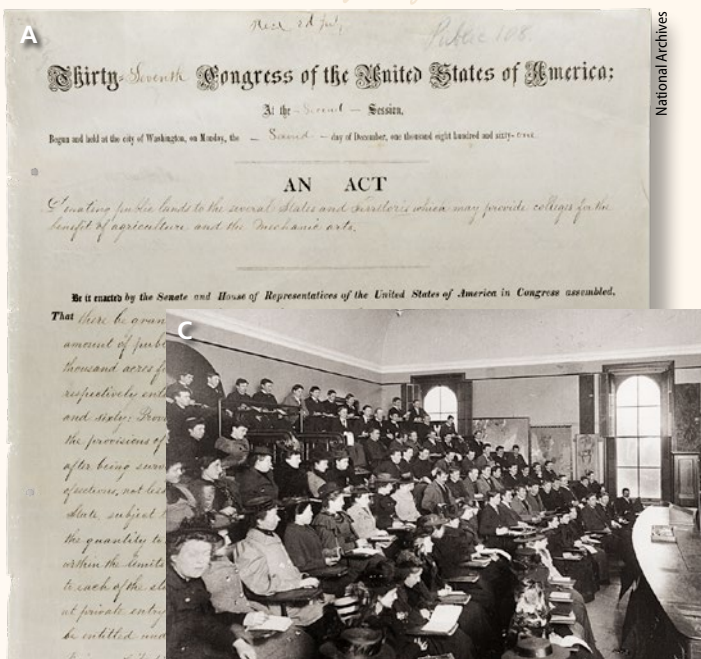 A
Public 108.
National Archives
Thirty-Seventh Congress of the United States of America;
At the Second Session,
Begun and held at the city of Washington, on Monday, the Second day of December, one thousand eight hundred and sixty-one
AN ACT
Donating public lands to the several States and Territories which may provide colleges for the
benefit of agriculture and the mechanic arts.
Be it enacted by the Senate and House of Representatives of the United States of America in Congress assembled,
That there be gran
amount of pub
thousand acres f
respectively
and sixty: Prov
the provisions of
after being surv
of sections, not less
State, subject
the quantity to
within the limits
to each of the
at private entry
be entitled
C